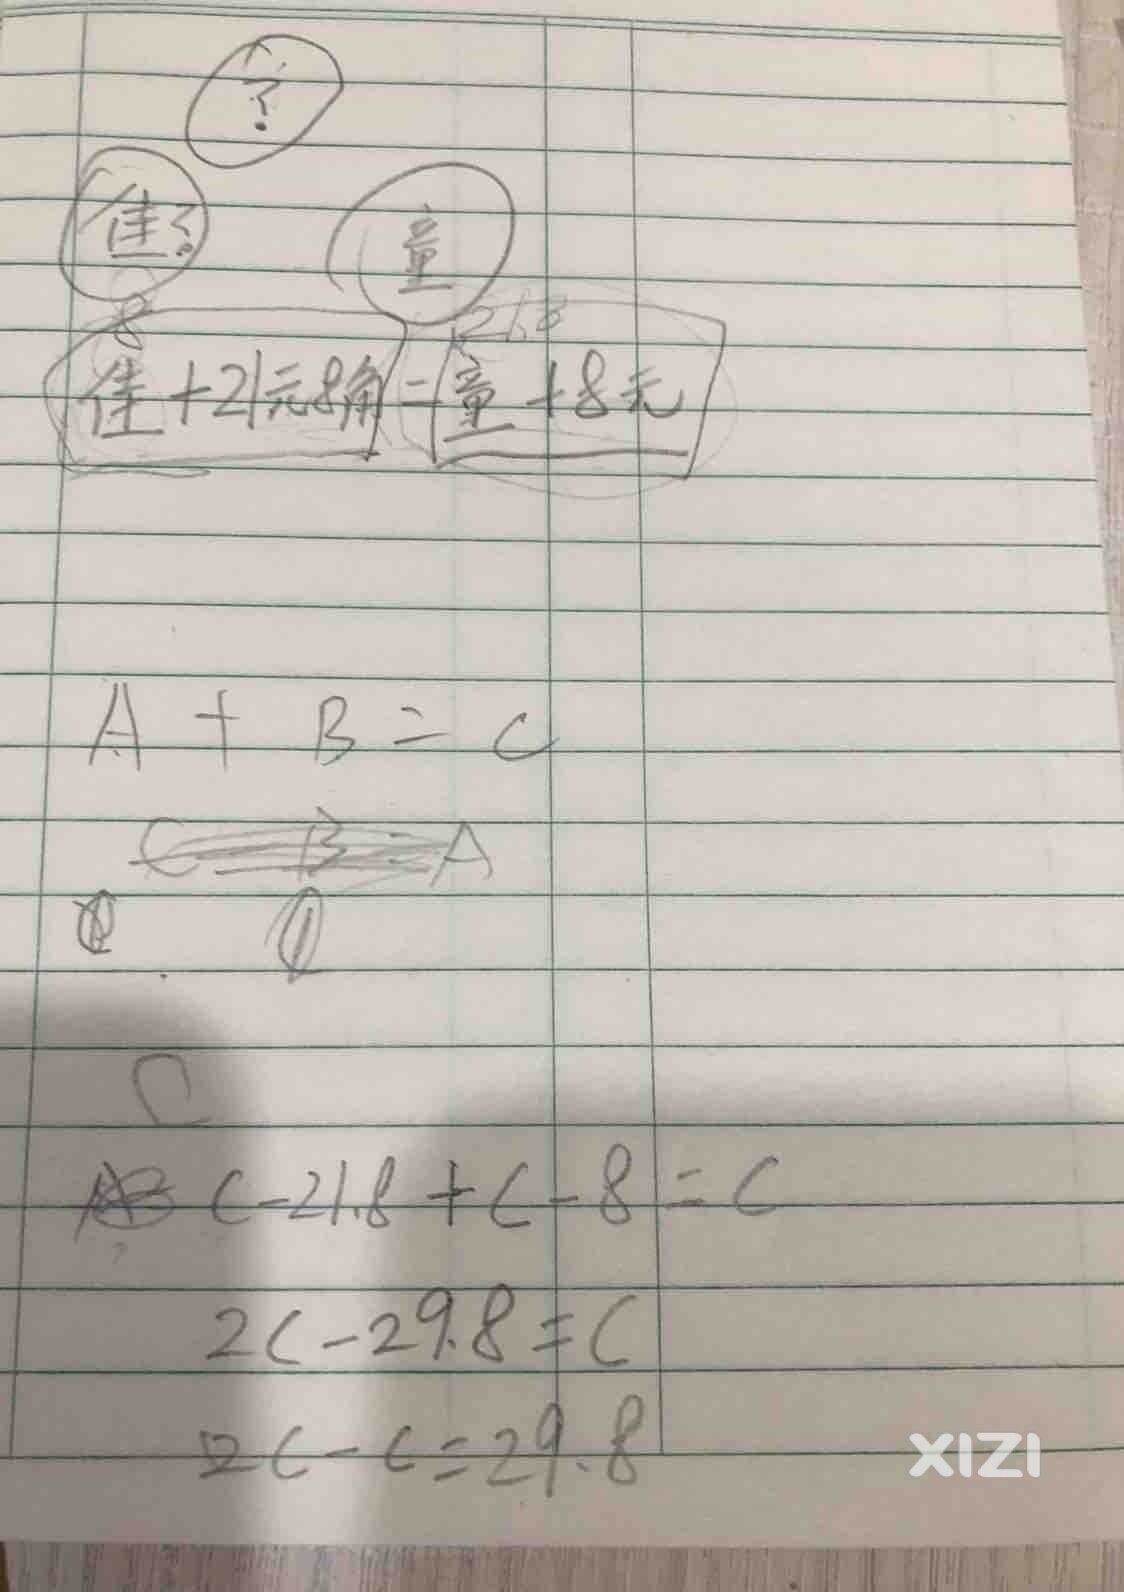 ?
佳? 童
8 21.8
佳+21元8角=童+8元
A + B = C
C B = A
C
C-21.8+C-8=C
2C-29.8=C
2C-C=29.8
XIZI